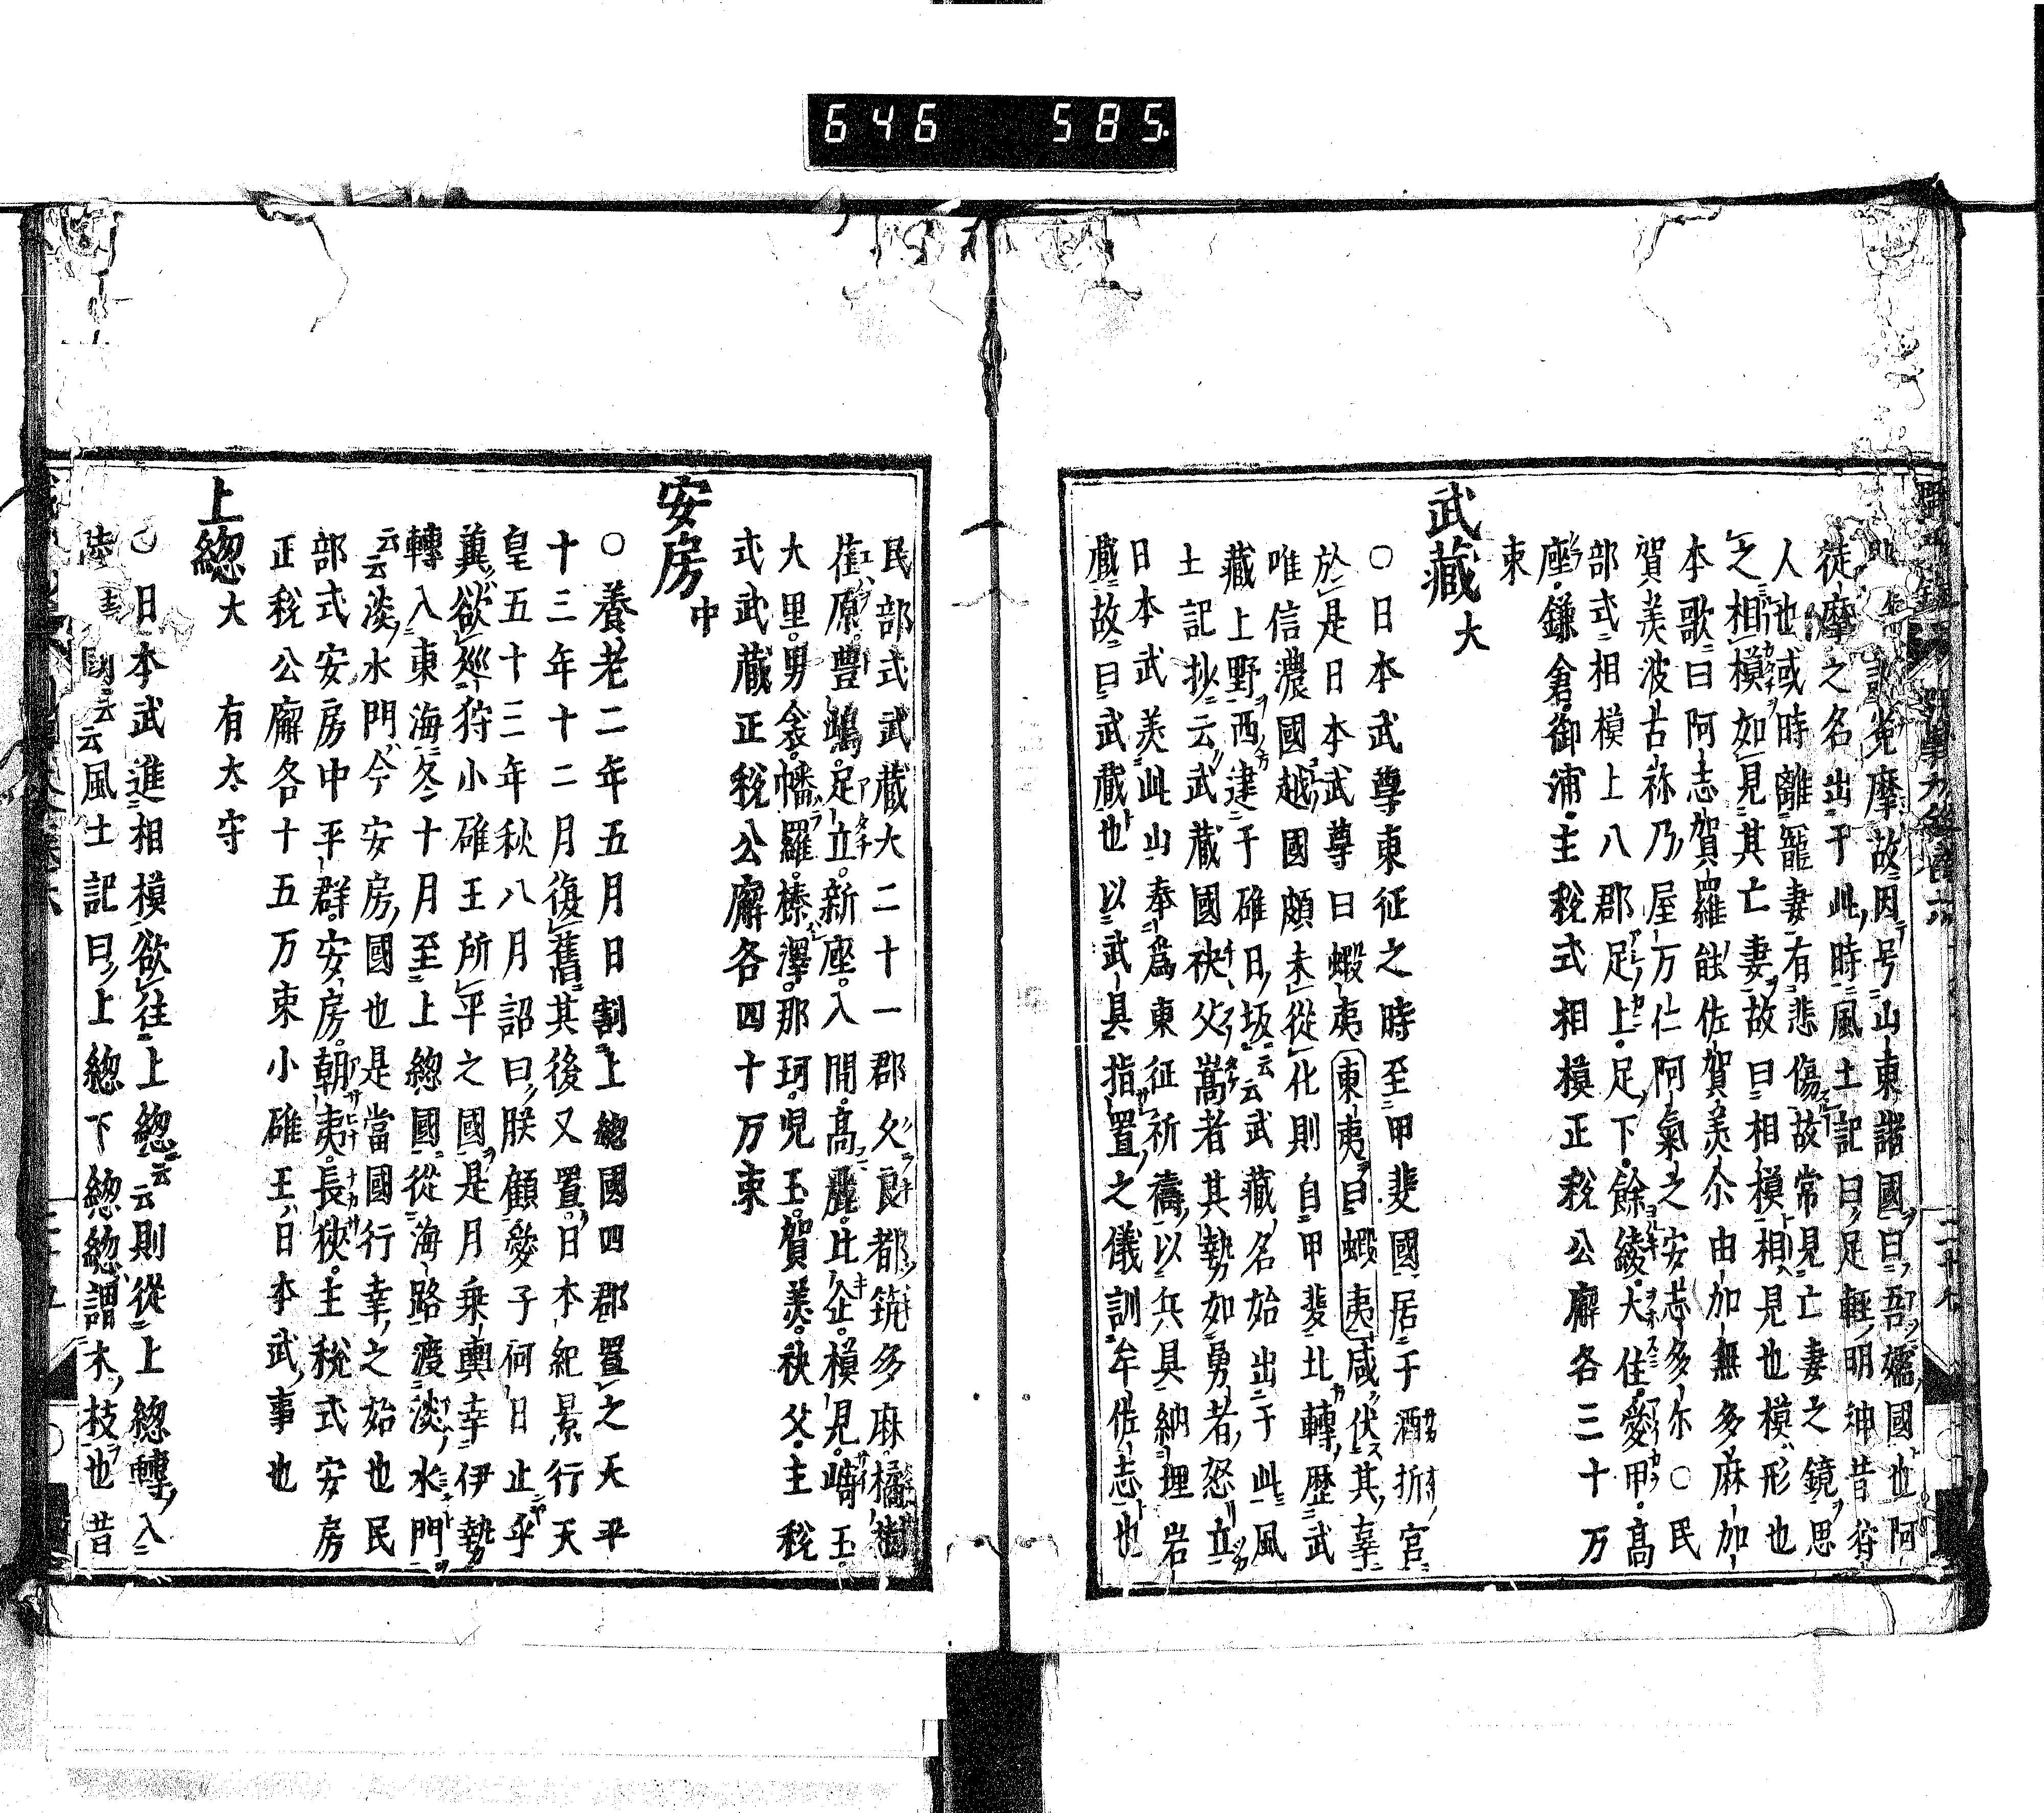 646 585.
登摩故因号山東諸國曰吾嬬國也阿
徒摩之名出于此時風土記曰足輕明神昔狩
人也或時離寵妻有悲傷故常見亡妻之鏡思
之相模如見其亡妻故曰相模相見也模形也
本歌曰阿志賀羅能佐賀美尒由加無多麻加
賀美波古祢乃屋万仁阿氣之安志多尓○民
部式相模上八郡足上足下餘綾大住愛甲高
座鎌倉御浦主税式相模正税公廨各三十万
束
武藏大
○日本武尊東征之時至甲斐國居于酒折宮
於是日本武尊曰蝦夷東夷曰蝦夷咸伏其辜
唯信濃國越國頗未從化則自甲斐北轉歴武
藏上野西逮于碓日坂云云武藏名始出于此風
土記抄云武藏國秩父嵩者其勢如勇者怒立
日本武美此山奉爲東征祈禱以兵具納埋岩
藏故曰武藏也以武具指置之儀訓牟佐志也
民部式武藏大二十一郡久良都筑多麻橘樹
荏原豊嶋足立新座入間高麗比企横見﨑玉
大里男衾幡羅榛澤那珂兒玉賀美秩父主税
式武藏正税公廨各四十万束
安房中
○養老二年五月日割上緫國四郡置之天平
十三年十二月復舊其後又置日本紀景行天
皇五十三年秋八月詔曰朕顧愛子何日止乎
冀欲巡狩小碓王所平之國是月乗輿幸伊勢
轉入東海冬十月至上緫國從海路渡淡水門
云云淡水門今安房國也是當國行幸之始也民
部式安房中平群安房朝夷長狹主税式安房
正税公廨各十五万束小碓王日本武事也
上緫大 有太守
○日本武進相模欲往上緫云云則從上緫轉入
陸 國云云風土記曰上緫下緫緫謂木枝也昔